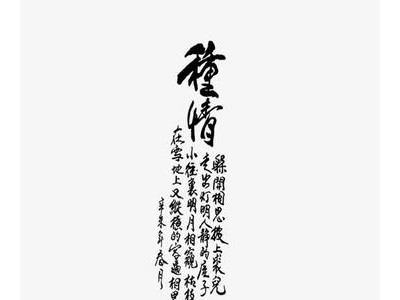 種情
躲開相思披上裘兒
走出灯明人静的屋子
小徑裏明月相窺枯枝
在雪地上又縱橫的寫遍相思
辛未年春月